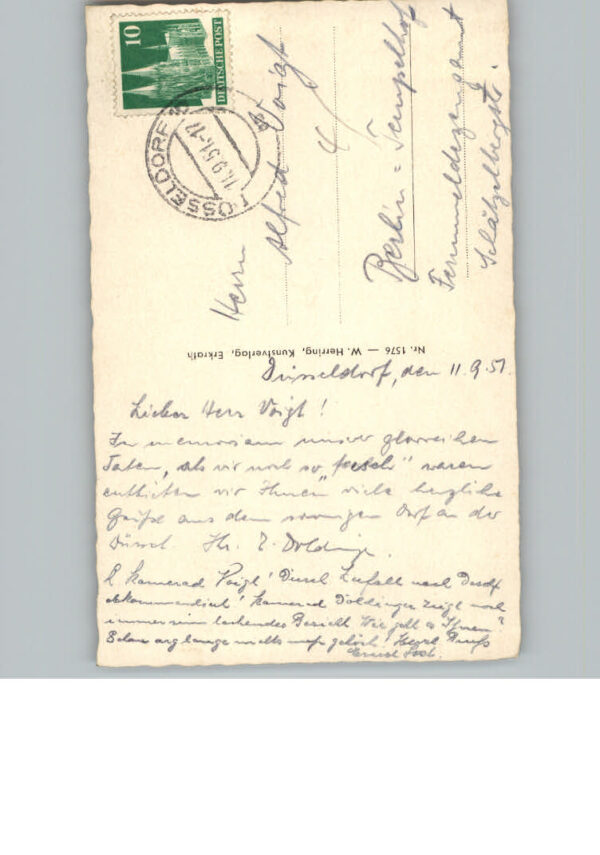 10
DEUTSCHE POST
DÜSSELDORF
11.9.51.-17
Herrn
Alfred Voigt
Berlin-Tempelhof
Fernmeldezeugamt
Schätzelbergstr.
Nr. 1576 — W. Herring, Kunstverlag, Erkrath
Düsseldorf, den 11.9.51.
Lieber Herr Voigt!
In memoriam unserer glorreichen
Taten, als wir noch so „fesch" waren
entbieten wir Ihnen viele herzliche
Grüße aus dem sonnigen Dorf an der
Düssel. Ihr E. Doldinger.
L. Kamerad Voigt! Durch Zufall nach Dssdf
abkommandiert! Kamerad Doldinger zeigt noch
immer sein lachendes Gesicht. Wie geht es Ihnen?
Schon arg lange nichts mehr gehört! Herzl. Gruß
Ernst